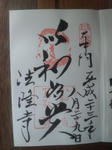 奉拝
平成二十三年
八月二十九日
以和為貴
法隆寺